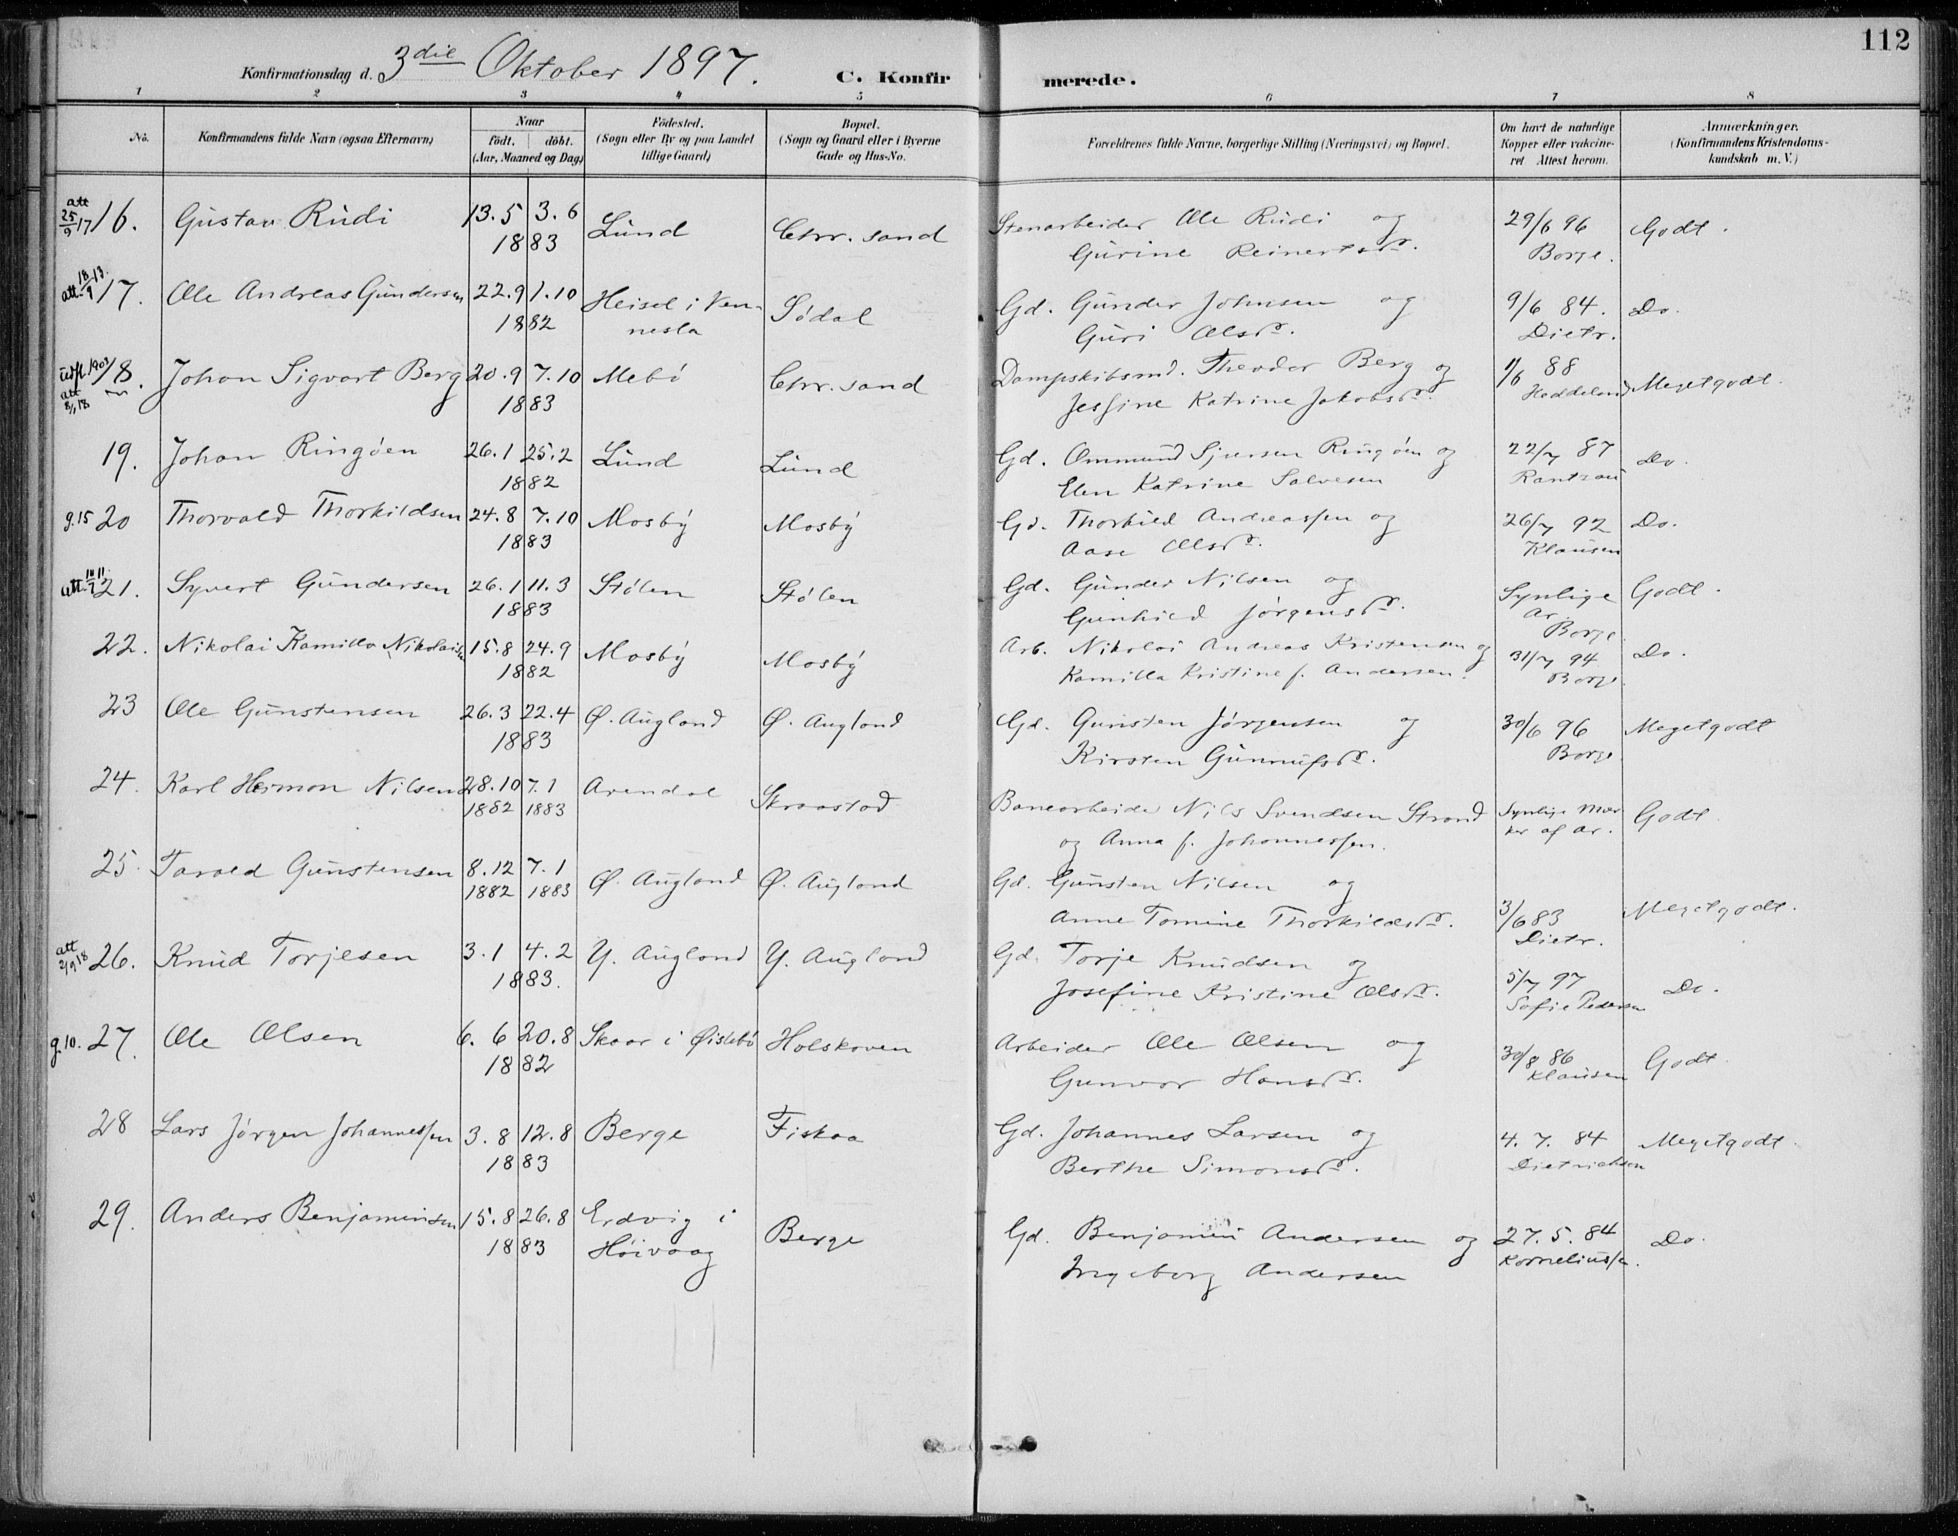 112
Konfirmationsdag d. 3die Oktober 1897. C. Konfirmerede.
1 2 3 4 5 6 7 8
No. Konfirmandens fulde Navn (ogsaa Efternavn) Naar født. døbt. (Aar, Maaned og Dag) Fødested. (Sogn eller By og paa Landet tillige Gaard) Bopæl. (Sogn og Gaard eller i Byerne Gade og Hus-No. Forældrenes fulde Navne, borgerlige Stilling (Næringsvei) og Bopæl. Om havt de naturlige Kopper eller vakcineret Attest herom. Anmærkninger. (Konfirmandens Kristendomskundskab m. V.)
att 25/9 17 16. Gustav Rudi 13.5 3.6 1883 Lund Chr.sand Stenarbeider Ole Rudi og Gurine Reinertsdr. 29/6 96 Borge. Godt.
att. 18/9 13. 17. Ole Andreas Gundersen 22.9 1.10 1882 Heisel i Vennesla Sødal Gd. Gunder Johnsen og Guri Olsdr. 9/6 84. Dietr. Do.
udfl. 1903 att 8/1 18 18. Johan Sigvart Berg 20.9 7.10 1883 Mebø Chr.sand Dampskibsmd. Theodor Berg og Jesfine Katrine Jakobsdr. 1/6 88 Heddeland Megetgodt.
19. Johan Ringøen 26.1 25.2 1882 Lund Lund Gd. Ommund Sjursen Ringøen og Elen Katrine Salvesen 22/7 87 Rantzau Do.
g.15 20 Thorvald Thorkildsen 24.8 7.10 1883 Mosby Mosby Gd. Thorkild Andreassen og Aase Olsdr. 26/7 92 Klausen Do.
att. 11. 21. Syvert Gundersen 26.1 11.3 1883 Stølen Stølen Gd. Gunder Nilsen og Gunhild Jørgensdr. Synlige Ar Borge Godt.
22. Nikolai Kamillo Nikolaisen 15.8 24.9 1882 Mosby Mosby Arb. Nikolai Andreas Kristensen og Kamilla Kristine f. Andersen. 31/7 94 Borge. Do.
23 Ole Gunstensen 26.3 22.4 1883 Ø. Augland Ø. Augland Gd. Gunsten Jørgensen og Kirsten Gunnufsdr. 30/6 96 Borge Megetgodt
24. Karl Herman Nilsen 28.10 1882 7.1 1883 Arendal Skraastad Banearbeider Nils Svendsen Strand og Anna f. Johannessen. Synlige Mærker af Ar. Godt.
25. Tarald Gunstensen 8.12 1882 7.1 1883 Ø. Augland Ø. Augland Gd. Gunsten Nilsen og Anne Tomine Thorkildsdr. 3/6 83 Dietr. Megetgodt.
att 2/9 18 26. Knud Torjesen 3.1 4.2 1883. Y. Augland Y. Augland Gd. Torje Knudsen og Josefine Kristine Olsdr. 5/7 97 Sofie Pedersen Do.
g.10. 27. Ole Olsen 6.6 20.8 1882 Skaar i Øislebø Holskoven Arbeider Ole Olsen og Gunvor Hansdr. 30/8 86 Klausen Godt.
28 Lars Jørgen Johannessen 3.8 12.8 1883 Berge Fiskaa Gd. Johannes Larsen og Berthe Simonsdr. 4.7.84 Dietrichsen Megetgodt.
29. Anders Benjaminsen 15.8 26.8 1883 Erdvig i Høivaag Berge Gd. Benjamin Andersen og Ingeborg Andersen 27.5.84 Korneliussen. Do.